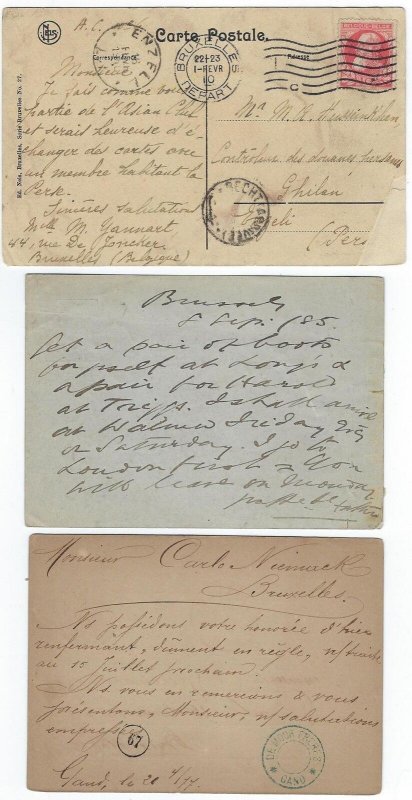 Carte Postale.
A. C.
Correspondance
Adresse
ENZELI
BRUXELLES
22-23
1-FEVR
10
DEPART
BELGIQUE-BELGIË
Ed. Nels, Bruxelles. Série Bruxelles No. 27.
NELS
Monsieur
Je fais comme vous
partie de l'Asian Club
et serais heureuse d'é-
changer des cartes avec
un membre habitant la
Perse.
Sincères salutations
Mlle M. Gannart
44, rue De Joncker
Bruxelles (Belgique)
Mr M. A.
Contrôleur des douanes persanes
Ghilan
Enzeli
(Perse
RECHT
Brussels
8 Sept. /85.
Get a pair of boots
for self at Long's &
a pair for Harold
at Tripps. I shall arrive
at Walmer Friday
or Saturday. I go to
London first &
will leave on Monday
Monsieur Carlo Niemack
Bruxelles.
Ns possédons votre honorée d'hier
renfermant, dûment en règle, n/traite
au 15 Juillet prochain.
Ns vous en remercions & vous
présentons, Monsieur, n/salutations
empressées
67
Gand, le 20
DE FRERES
GAND